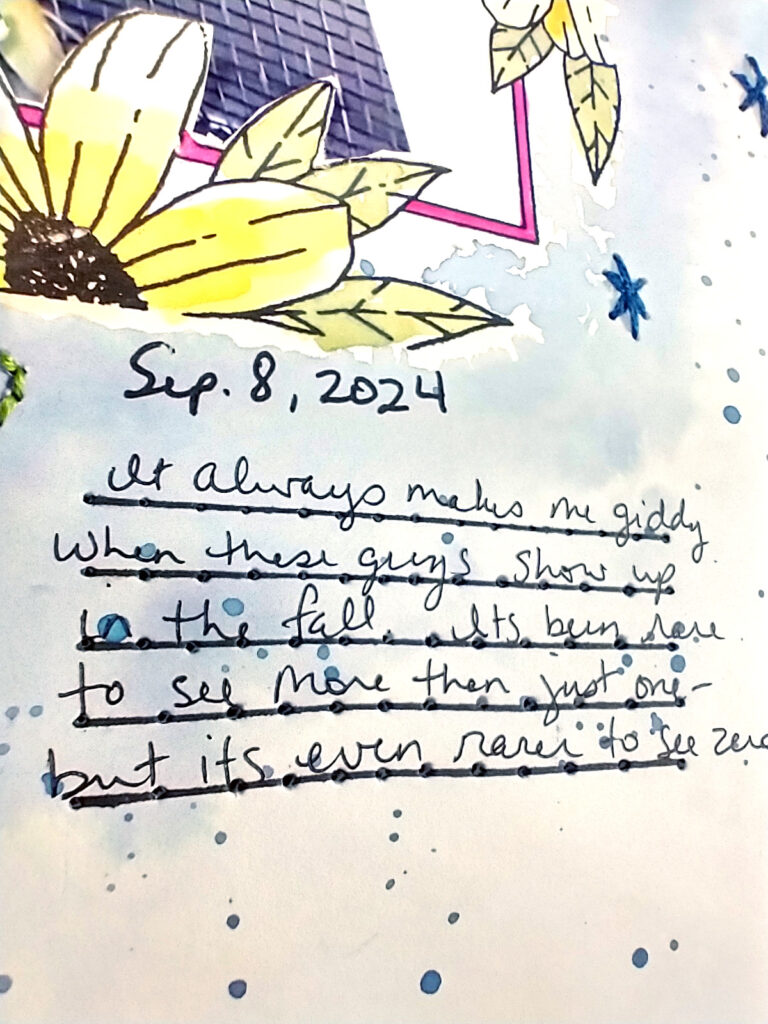 Sep. 8, 2024
It always makes me giddy
when these guys show up
in the fall. Its been rare
to see more then just one-
but its even rarer to see zero